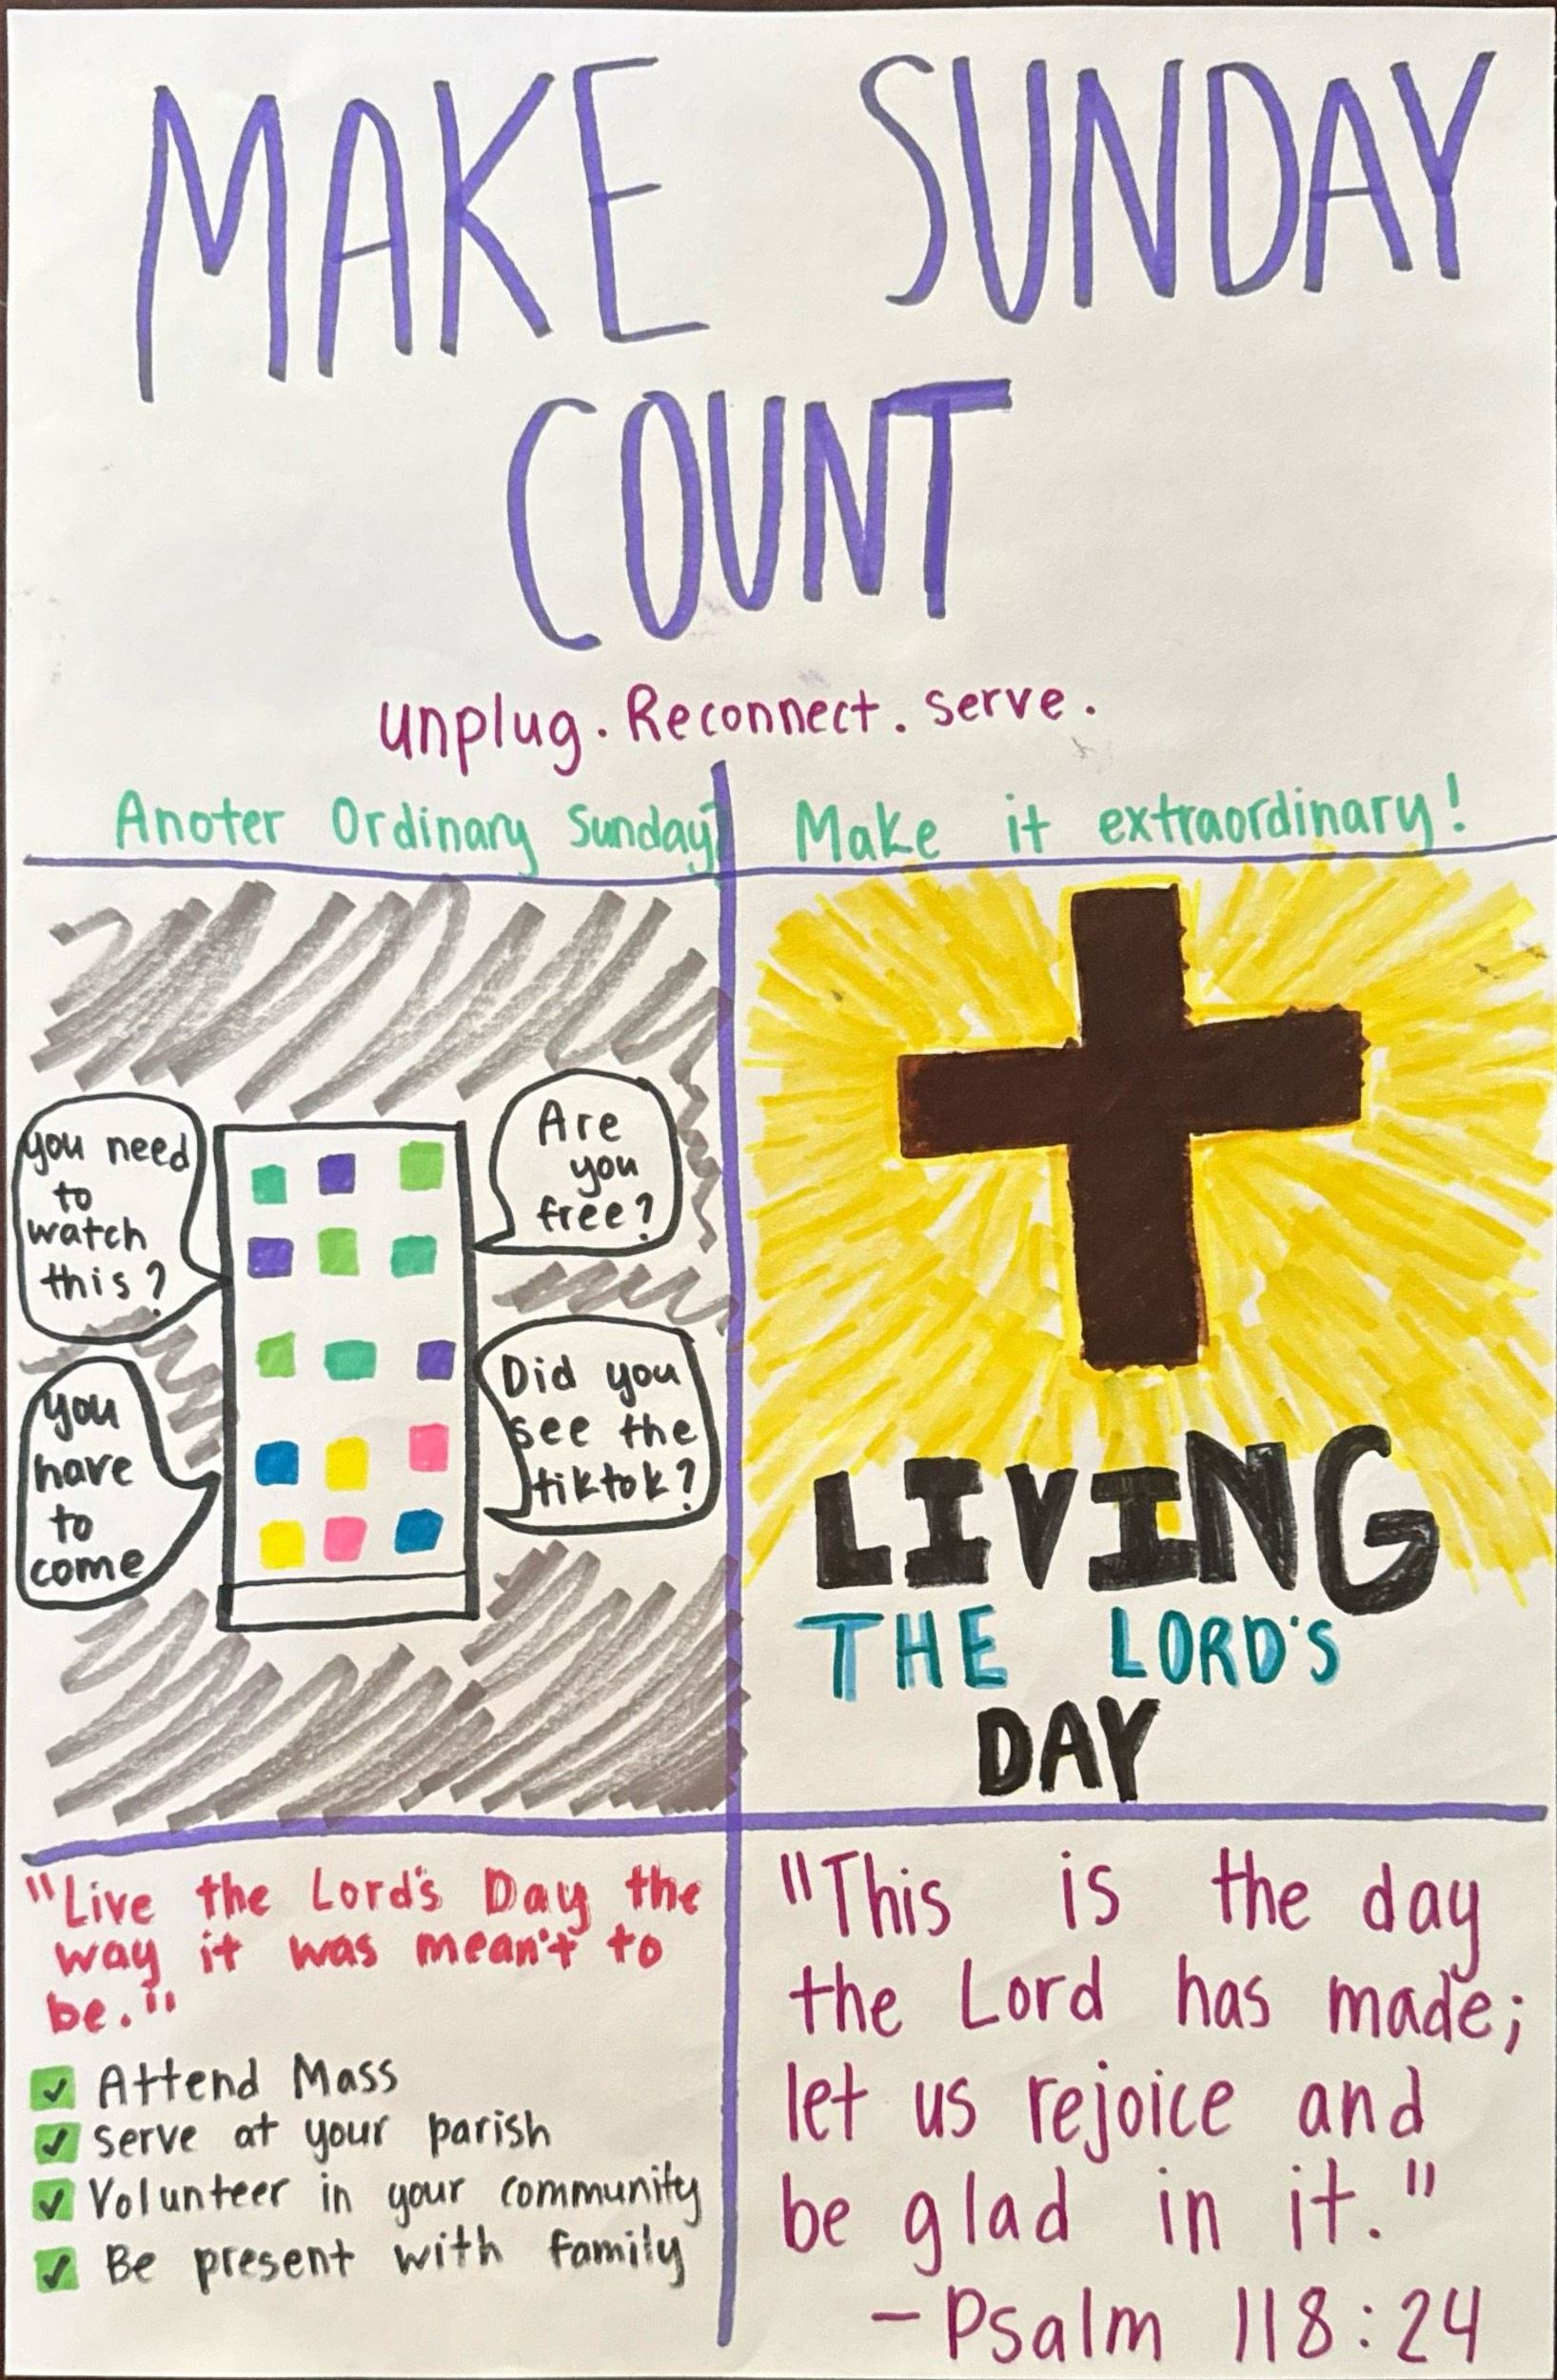 MAKE SUNDAY
COUNT
unplug. Reconnect. serve.
Anoter Ordinary Sunday?
Make it extraordinary!
you need
to
watch
this?
Are
you
free?
you
have
to
come
Did you
see the
tiktok?
LIVING
THE LORD'S
DAY
"Live the Lord's Day the
way it was mean't to
be."
Attend Mass
serve at your parish
Volunteer in your community
Be present with family
"This is the day
the Lord has made;
let us rejoice and
be glad in it."
- Psalm 118:24